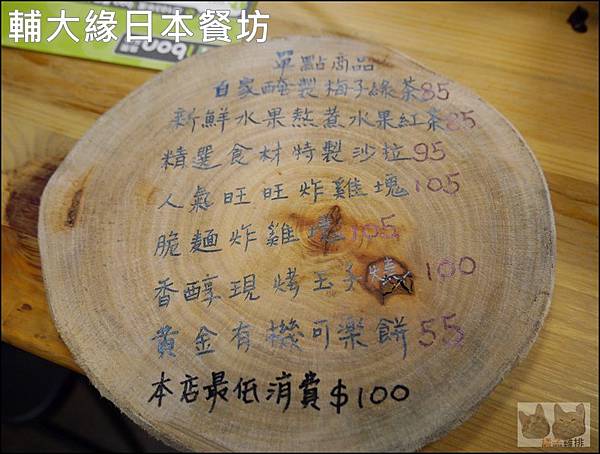 輔大緣日本餐坊
單點商品
自家醃製梅子綠茶85
新鮮水果熬煮水果紅茶85
精選食材特製沙拉95
人氣旺旺炸雞塊105
脆麵炸雞塊105
香醇現烤玉子燒100
黃金有機可樂餅55
本店最低消費$100